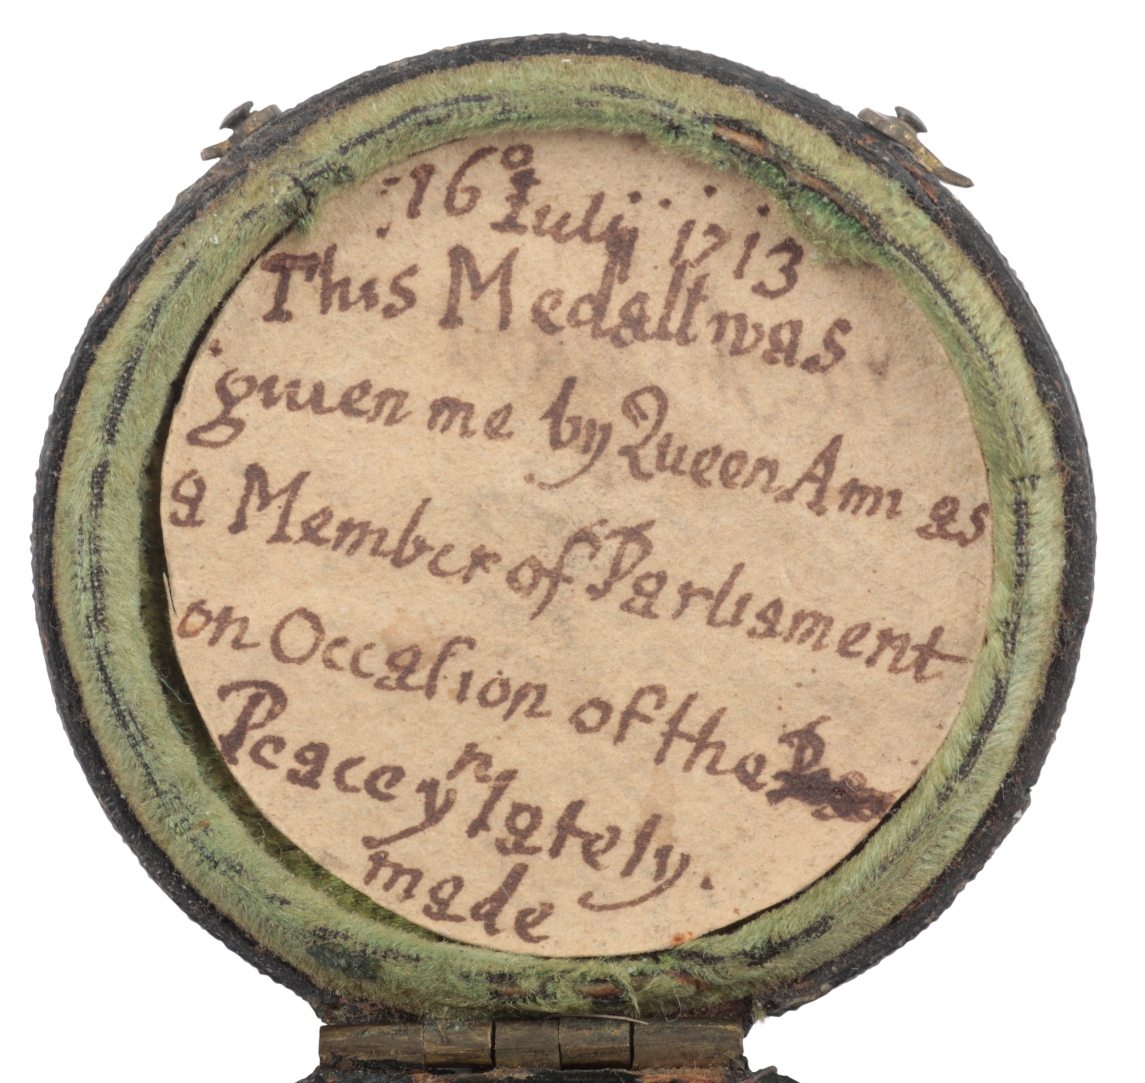 16º Iulij 1713
This Medall was
giuen me by Queen Ann as
a Member of Parliament
on Occaſion of the
Peace yⁿ lately.
made